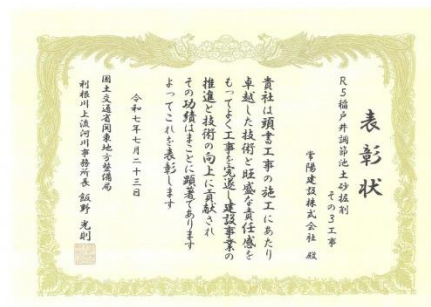 表彰状
R5稲戸井調節池土砂掘削
その3工事
常陽建設株式会社 殿
貴社は頭書工事の施工にあたり
卓越した技術と旺盛な責任感を
もってよく工事を完遂し建設事業の
推進と技術の向上に貢献され
その功績はまことに顕著であります
よってこれを表彰します
令和七年七月二十三日
国土交通省関東地方整備局
利根川上流河川事務所長 飯野 光則